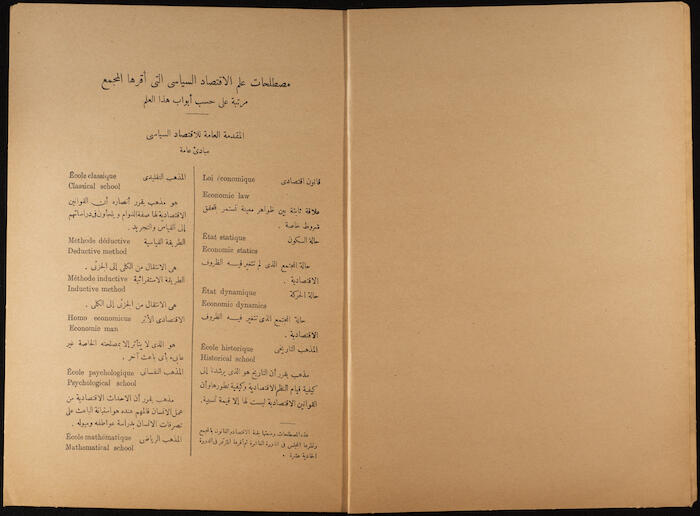 مصطلحات علم الاقتصاد السياسى التى أقرها المجمع
مرتبة على حسب أبواب هذا العلم
المقدمة العامة للاقتصاد السياسى
مبادئ عامة
قانون اقتصادى Loi économique
Economic law
علاقة ثابتة بين ظواهر معينة تستمر لتحقق
شروط خاصة .
حالة السكون État statique
Economic statics
حالة المجتمع الذى لم تتغير فيه الظروف
الاقتصادية .
حالة الحركة État dynamique
Economic dynamics
حالة المجتمع الذى تتغير فيه الظروف
الاقتصادية .
المذهب التاريخى École historique
Historical school
مذهب يقرر أن التاريخ هو الذى يرشدنا إلى
كيفية قيام النظم الاقتصادية وكيفية تطورها وأن
القوانين الاقتصادية ليست لها إلا قيمة نسبية.
هذه المصطلحات وضعتها لجنة الاقتصاد والقانون بالمجمع
المجلس فى الدورة العاشرة ثم أقرها المؤتمر فى الدورة
الحادية عشرة .
المذهب التقليدى École classique
Classical school
هو مذهب يقرر أنصاره أن القوانين
الاقتصادية لها صفة الدوام و يلجأون فى دراساتهم
إلى القياس والتجريد .
الطريقة القياسية Méthode déductive
Deductive method
هى الانتقال من الكلى إلى الجزئى .
الطريقة الاستقرائية Méthode inductive
Inductive method
هى الانتقال من الجزئى إلى الكلى .
الاقتصادى الأثر Homo economicus
Economic man
هو الذى لا يتأثر إلا بمصلحته الخاصة غير
عابئ بأى باعث آخر .
المذهب النفسانى École psychologique
Psychological school
مذهب يقرر أن الأحداث الاقتصادية من
عمل الانسان فالمهم عنده هو استبانة الباعث على
تصرفات الانسان بدراسة عواطفه وميوله .
المذهب الرياضى École mathématique
Mathematical school